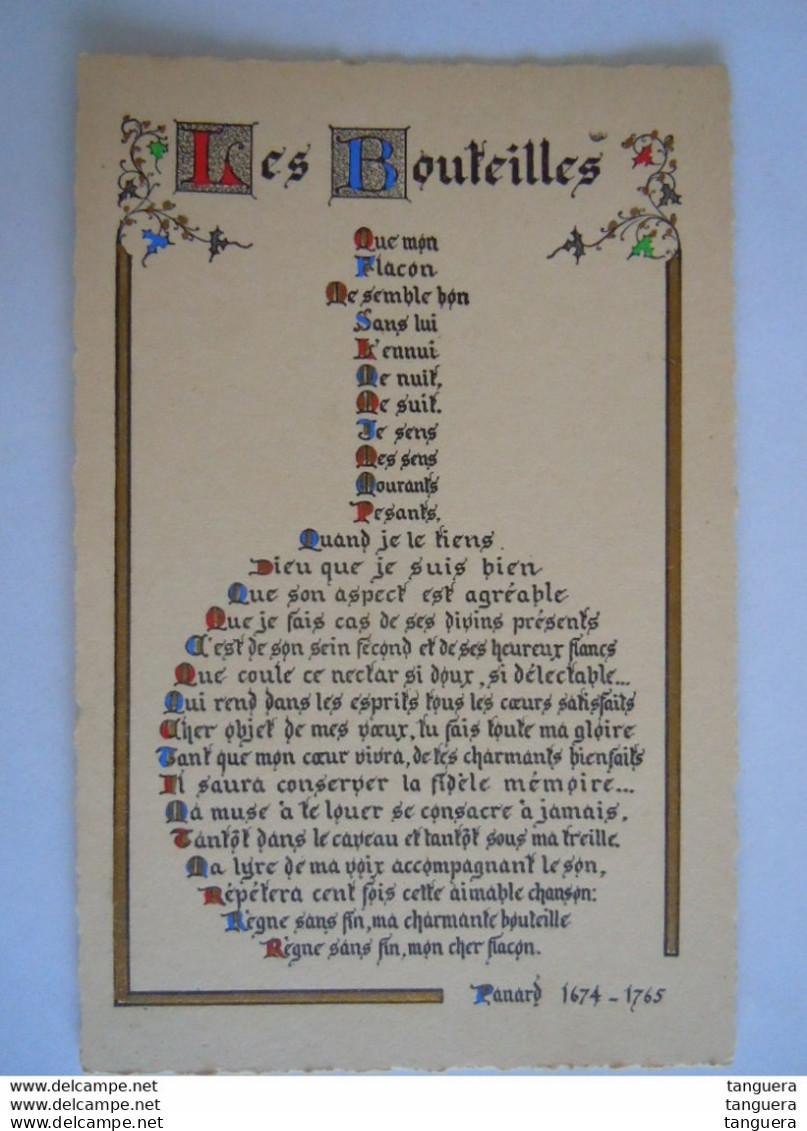 Les Bouteilles
Que mon
Flacon
Me semble bon
Sans lui
L'ennui
Me nuit,
Me suit.
Je sens
Mes sens
Mourants
Pesants.
Quand je le tiens
Dieu que je suis bien
Que son aspect est agréable
Que je fais cas de ses divins présents
C'est de son sein fécond et de ses heureux flancs
Que coule ce nectar si doux, si délectable...
Qui rend dans les esprits tous les cœurs satisfaits
Cher objet de mes vœux, tu fais toute ma gloire
Tant que mon cœur vivra, de tes charmants bienfaits
Il saura conserver la fidèle mémoire...
Ma muse à te louer se consacre à jamais,
Tantôt dans le caveau et tantôt sous ma treille.
Ma lyre de ma voix accompagnant le son,
Répétera cent fois cette aimable chanson:
Règne sans fin, ma charmante bouteille
Règne sans fin, mon cher flacon.
Panard 1674-1765
www.delcampe.net tanguera
www.delcampe.net tanguera
www.delcampe.net tanguera